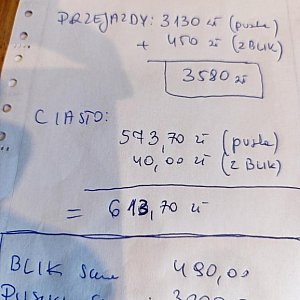 PRZEJAZDY: 3130 zł (puszka)
+ 450 zł (z BLIK)
3580 zł
CIASTO:
573,70 zł (puszka)
40,00 zł (z BLIK)
= 613,70 zł
BLIK 490,00